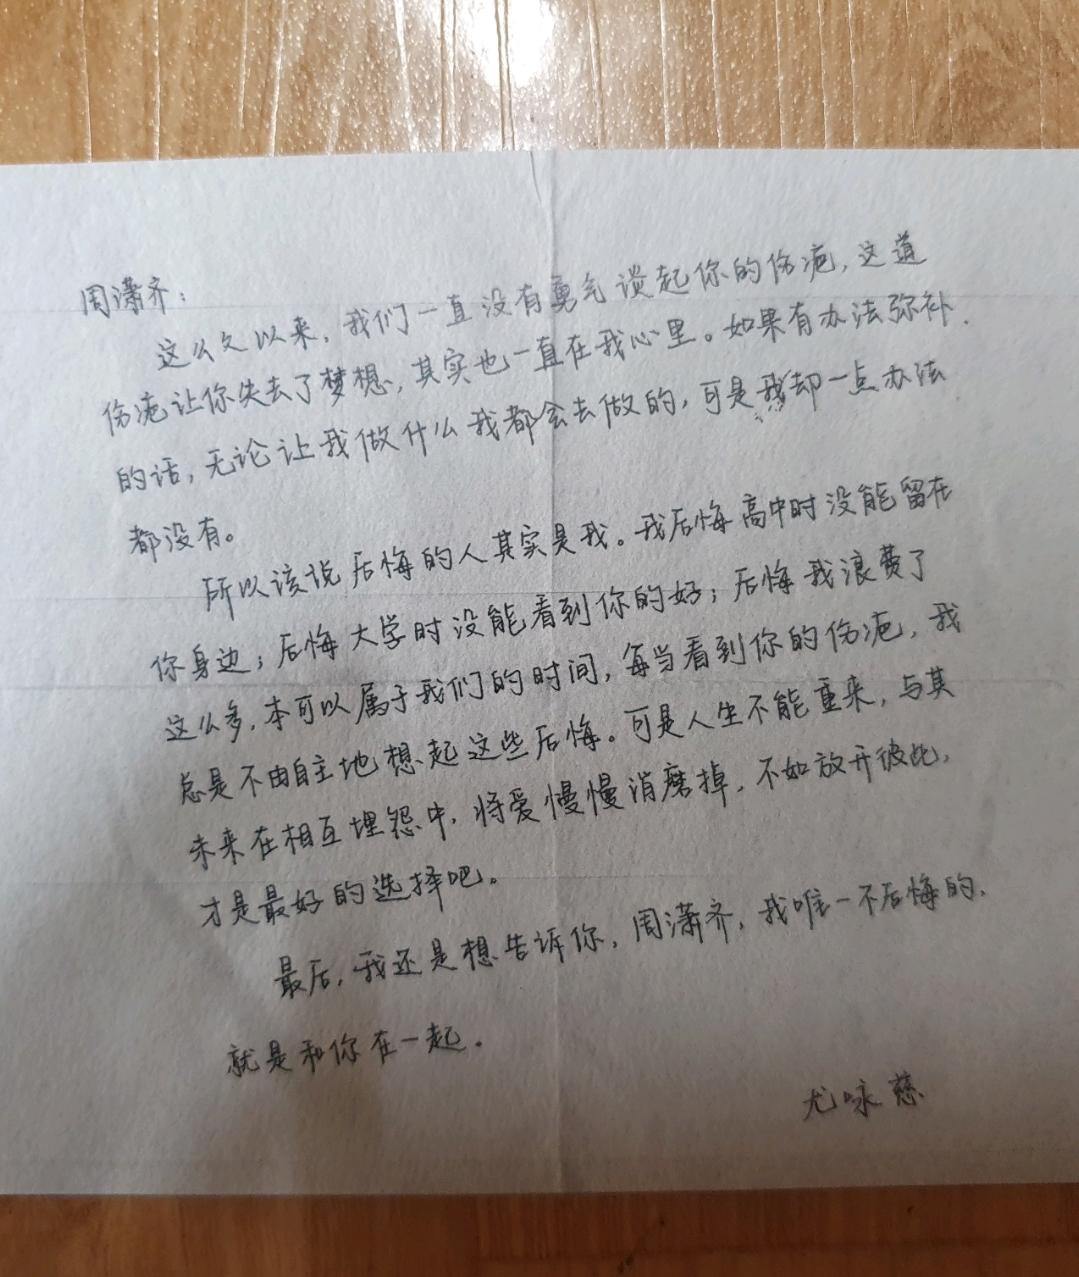 周潇齐:
这么久以来,我们一直没有勇气谈起你的伤疤,这道
伤疤让你失去了梦想,其实也一直在我心里。如果有办法弥补
的话,无论让我做什么我都会去做的,可是我却一点办法
都没有。
所以该说后悔的人其实是我。我后悔高中时没能留在
你身边;后悔大学时没能看到你的好;后悔我浪费了
这么多,本可以属于我们的时间,每当看到你的伤疤,我
总是不由自主地想起这些后悔。可是人生不能重来,与其
未来在相互埋怨中,将爱慢慢消磨掉,不如放开彼此,
才是最好的选择吧。
最后,我还是想告诉你,周潇齐,我唯一不后悔的,
就是和你在一起.
尤咏慈